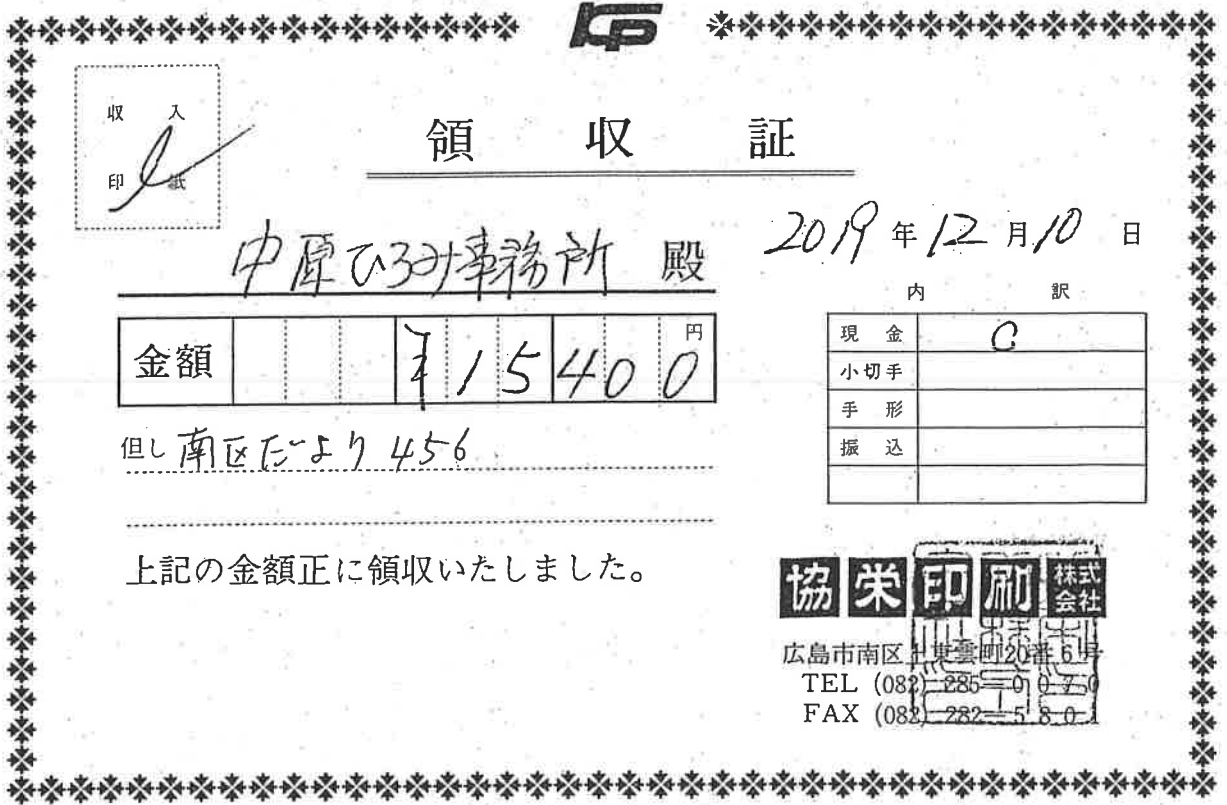 KP
収入
印紙
領収証
2019年12月10日
中原ひろみ事務所 殿
金額 ¥15400円
但し 南区だより 456
上記の金額正に領収いたしました。
内訳
現金
小切手
手形
振込
協栄印刷株式会社
広島市南区上東雲町20番6号
TEL (082) 285-0070
FAX (082) 282-5801